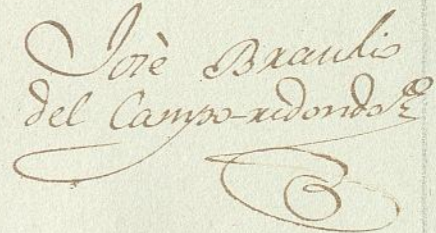 Josè Braulio
del Campo-redondo